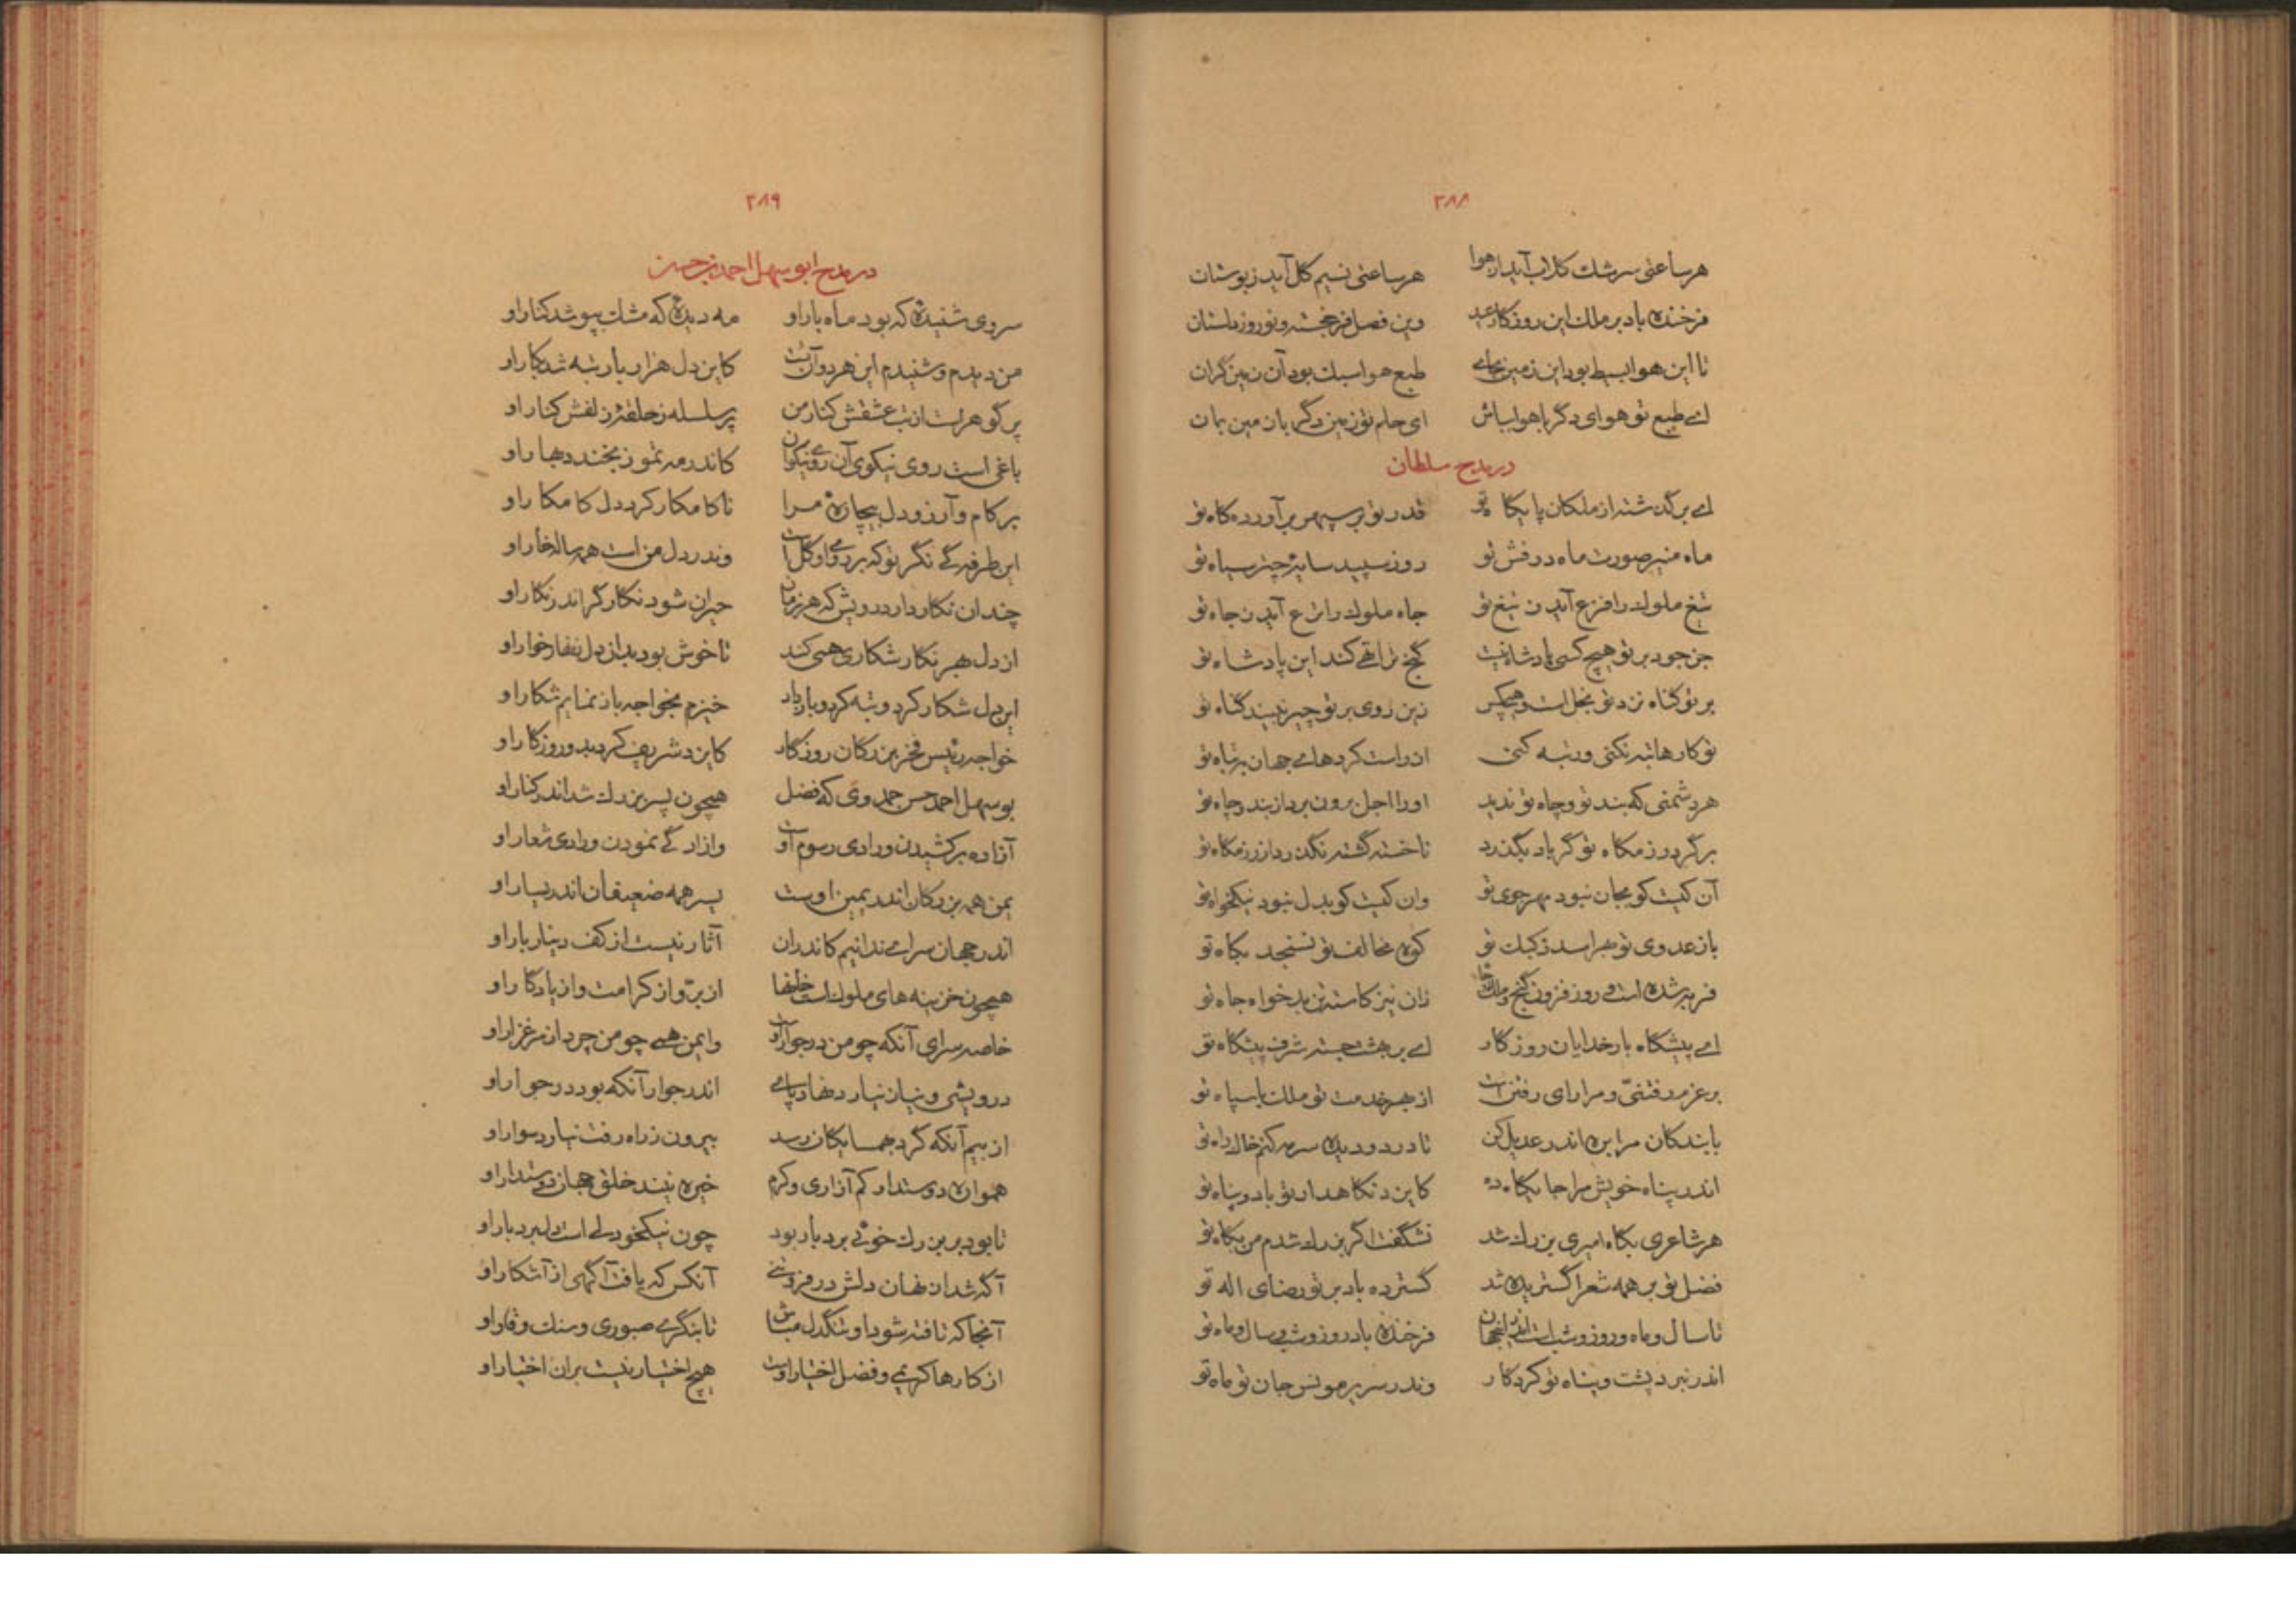 ۲۸۸
هر ساعتی سرشک گلاب آید از هوا هر ساعتی نسیم گل آید ز بوستان
فرخنده باد بر ملک این روزگار عید وین فصل فرخجسته و نوروز دلستان
تا این هوا بسیط بود این زمین بجای طبع هوا سبک بود آن زمین گران
ای طبع تو هوای دگر با هوا بباش ای حلم تو زمین دگر با زمین بمان
در مدح سلطان
ای برگذشته از ملکان پایگاه تو قدر تو بر سپهر برآورده گاه تو
ماه منیر صورت ماه درفش تو روز سپید سایهٔ چتر سیاه تو
تیغ ملوک را فزع آید ز تیغ تو جاه ملوک را نزع آید ز جاه تو
جز جود بر تو هیچ کسی پادشاه نیست گنج ترا تهی کند این پادشاه تو
بر تو گناه نزد تو بخل است و هیچکس زین روی بر تو چیز نبیند گناه تو
تو کارها تبه نکنی ور تبه کنی از راست کردهای جهان به تباه تو
هر دشمنی که بند تو و چاه تو ندید او را اجل برون برد از بند و چاه تو
برگرد رزمگاه تو گر باد بگذرد تا خسته گشته نگذرد از رزمگاه تو
آن کیست کو بجان نبود مهرجوی تو وان کیست کو بدل نبود نیکخواه تو
باز عدوی تو بهراسد ز کبک تو کوه مخالف تو نسنجد بکاه تو
فربه شده است و روز فزون گنج و ملک زان نیز کاسته تن بدخواه جاه تو
ای پیشگاه بارخدایان روزگار ای بر بهشت جسته شرف پیشگاه تو
بر عزم رفتنی و مرا رای رفتن است از بهر خدمت تو ملک با سپاه تو
با بندگان مرا بره اندر عدیل کن تا در دو دیده سرمه کنم خاک راه تو
اندر پناه خویش مرا جایگاه ده کایزد نگاهدار تو باد و پناه تو
هر شاعری بگاه امیری بزرگ شد نشگفت اگر بزرگ شدم من بگاه تو
فضل تو بر همه شعرا گستریده شد گسترده باد بر تو رضای اله تو
تا سال و ماه و روز و شب است اندر این جهان فرخنده باد روز و شب و سال و ماه تو
اندر نبرد پشت و پناه تو کردگار وندر سریر مونس جان تو ماه تو
۲۸۹
در مدح ابو سهل احمد بن حسن
سروی شنیدهٔ که بود ماه بار او مه دیدهٔ که مشک بپوشد کنار او
من دیدم و شنیدم این هر دو آن بت کاین دل هزار بار تبه شد بکار او
پر گوهر است از تب عشقش کنار من پر سلسله ز حلقهٔ زلفش کنار او
باغی است روی نیکوی آن روی نیکوان کاندر مه تموز بخندد بهار او
بر کام و آرزو دل بیچارهٔ مرا ناکامکار کرد دل کامکار او
این طرفهٔ نگر تو که بر روی او گل است وندر دل من است همه ساله خار او
چندان نگار دارد رویش که هر زمان حیران شود نگارگر اندر نگار او
از دل بهر نگار شکاری همی کند تا خوش بود بدل از دل نفار خوار او
این دل شکار کرد و تبه کرد و باز داد خیزم بخواجه باز نمایم شکار او
خواجه رئیس فخر بزرگان روزگار کایزدش بیافرید و روزگار او
بو سهل احمد حسن حمدوی که فضل همچون پسر بزرگ شد اندر کنار او
آزاده برکشیدن و رادی رسوم اوست وازادگی نمودن و رادی شعار او
یمن همه بزرگان اندر یمین اوست یسر همه ضعیفان اندر یسار او
اندر جهان سرای ندانیم کاندران آثار نیست از کف دینار بار او
همچون خزینه های ملوکست خانها از بر و از کرامت و از یادگار او
خاصه سرای آنکه چو من در جوار اوست وایمن همی چو من چرد از مرغزار او
درویشی و نیاز نیارد نهاد پای اندر جوار آنکه بود در جوار او
از بیم آنکه گرد بهمسایگان رسد بیرون ز راه رفت نیارد سوار او
همواره دوستدار کم آزاری و کرم خیره نیند خلق جهان دوستدار او
تا بود بر بزرگ خوئی بردبار بود چون نیکخو دلی است دل بردبار او
آگه شد از نهان دلش در فروتنی آنکس که یافت آگهی از آشکار او
آنجا که تافته شود او تنگدل مباش تا بنگری صبوری و سنگ و وقار او
از کارها کریمی و فضل اختیار اوست هیچ اختیار نیست بران اختیار او